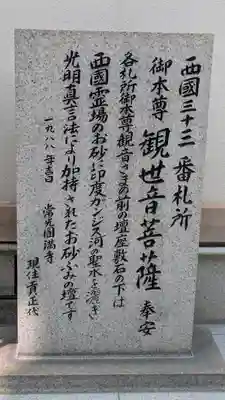 西國三十三番札所
御本尊 観世音菩薩 奉安
各札所御本尊観音さまの前の壇座敷石の下は
西國霊場のお砂と印度ガンジス河の聖水を灌ぎ
光明真言法により加持されたお砂ふみの壇です
一九八八年吉日
常光圓満寺
現住 貴正代